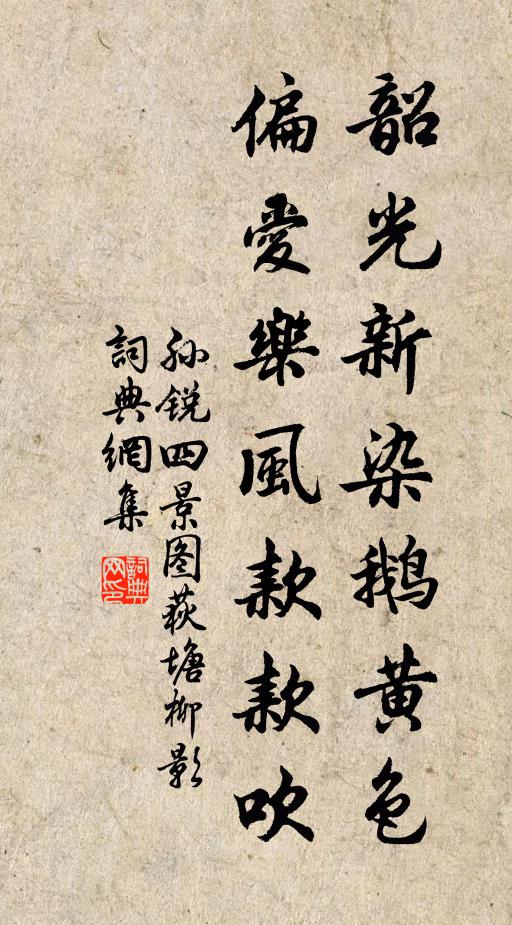 韶光新染鹅黄色
偏愛樂風款款吹
孙锐四景图荻塘柳影
詞典網集
詞典网印